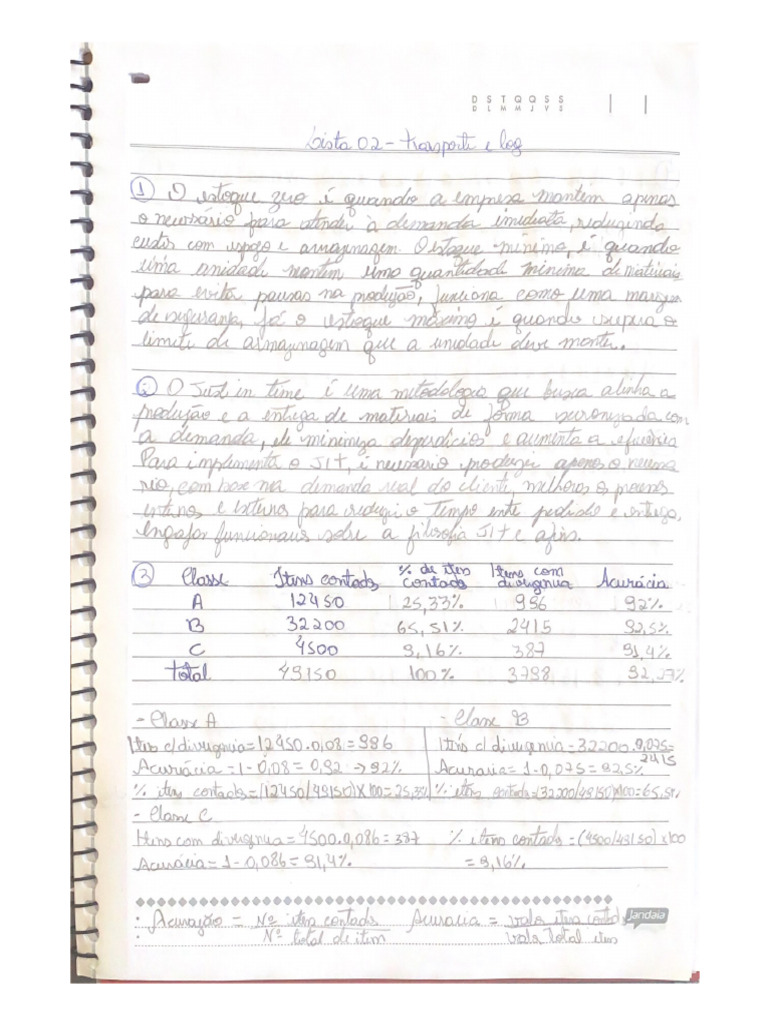 D S T Q Q S S
D L M M J V S
Lista 02 - Transporte e log
① O estoque zero é quando a empresa mantem apenas
o necessário para atender à demanda imediata, reduzindo
custos com espaço e armazenagem. O estoque mínimo, é quando
uma unidade mantem uma quantidade mínima de materiais
para evitar pausas na produção, funciona como uma margem
de segurança, já o estoque máximo é quando supera o
limite de armazenagem que a unidade deve manter.
② O Just in time é uma metodologia que busca alinhar a
produção e a entrega de materiais de forma sicronizada com
a demanda, ele minimiza desperdícios e aumenta a eficiência
Para implementar o JIT, é necessário produzir apenas o necessá
rio, com base na demanda real do cliente, melhorar os processos
internos e externos para reduzir o tempo entre pedido e entrega,
engajar funcionarios sobre a filosofia JIT e afins.
③ Classe Itens contados % de itens contados Itens com divergencia Acurácia
A 12450 25,33% 996 92%
B 32200 65,51% 2415 92,5%
C 4500 9,16% 387 91,4%
total 49150 100% 3798 92,27%
- Classe A - Classe B
Itens c/ divergencia = 12450 . 0,08 = 996 Itens c/ divergencia = 32200 . 0,075 = 2415
Acurácia = 1 - 0,08 = 0,92 → 92% Acuracia = 1 - 0,075 = 92,5%
% itens contados = (12450/49150) x 100 = 25,33% % itens contados = (32200/49150) x 100 = 65,51%
- Classe C
Itens com divergencia = 4500 . 0,086 = 387 % itens contados = (4500/49150) x 100
Acurácia = 1 - 0,086 = 91,4% = 9,16%
: Acuração = Nº itens contados Acuracia = valor itens contados
: Nº total de item valor total itens
Jandaia